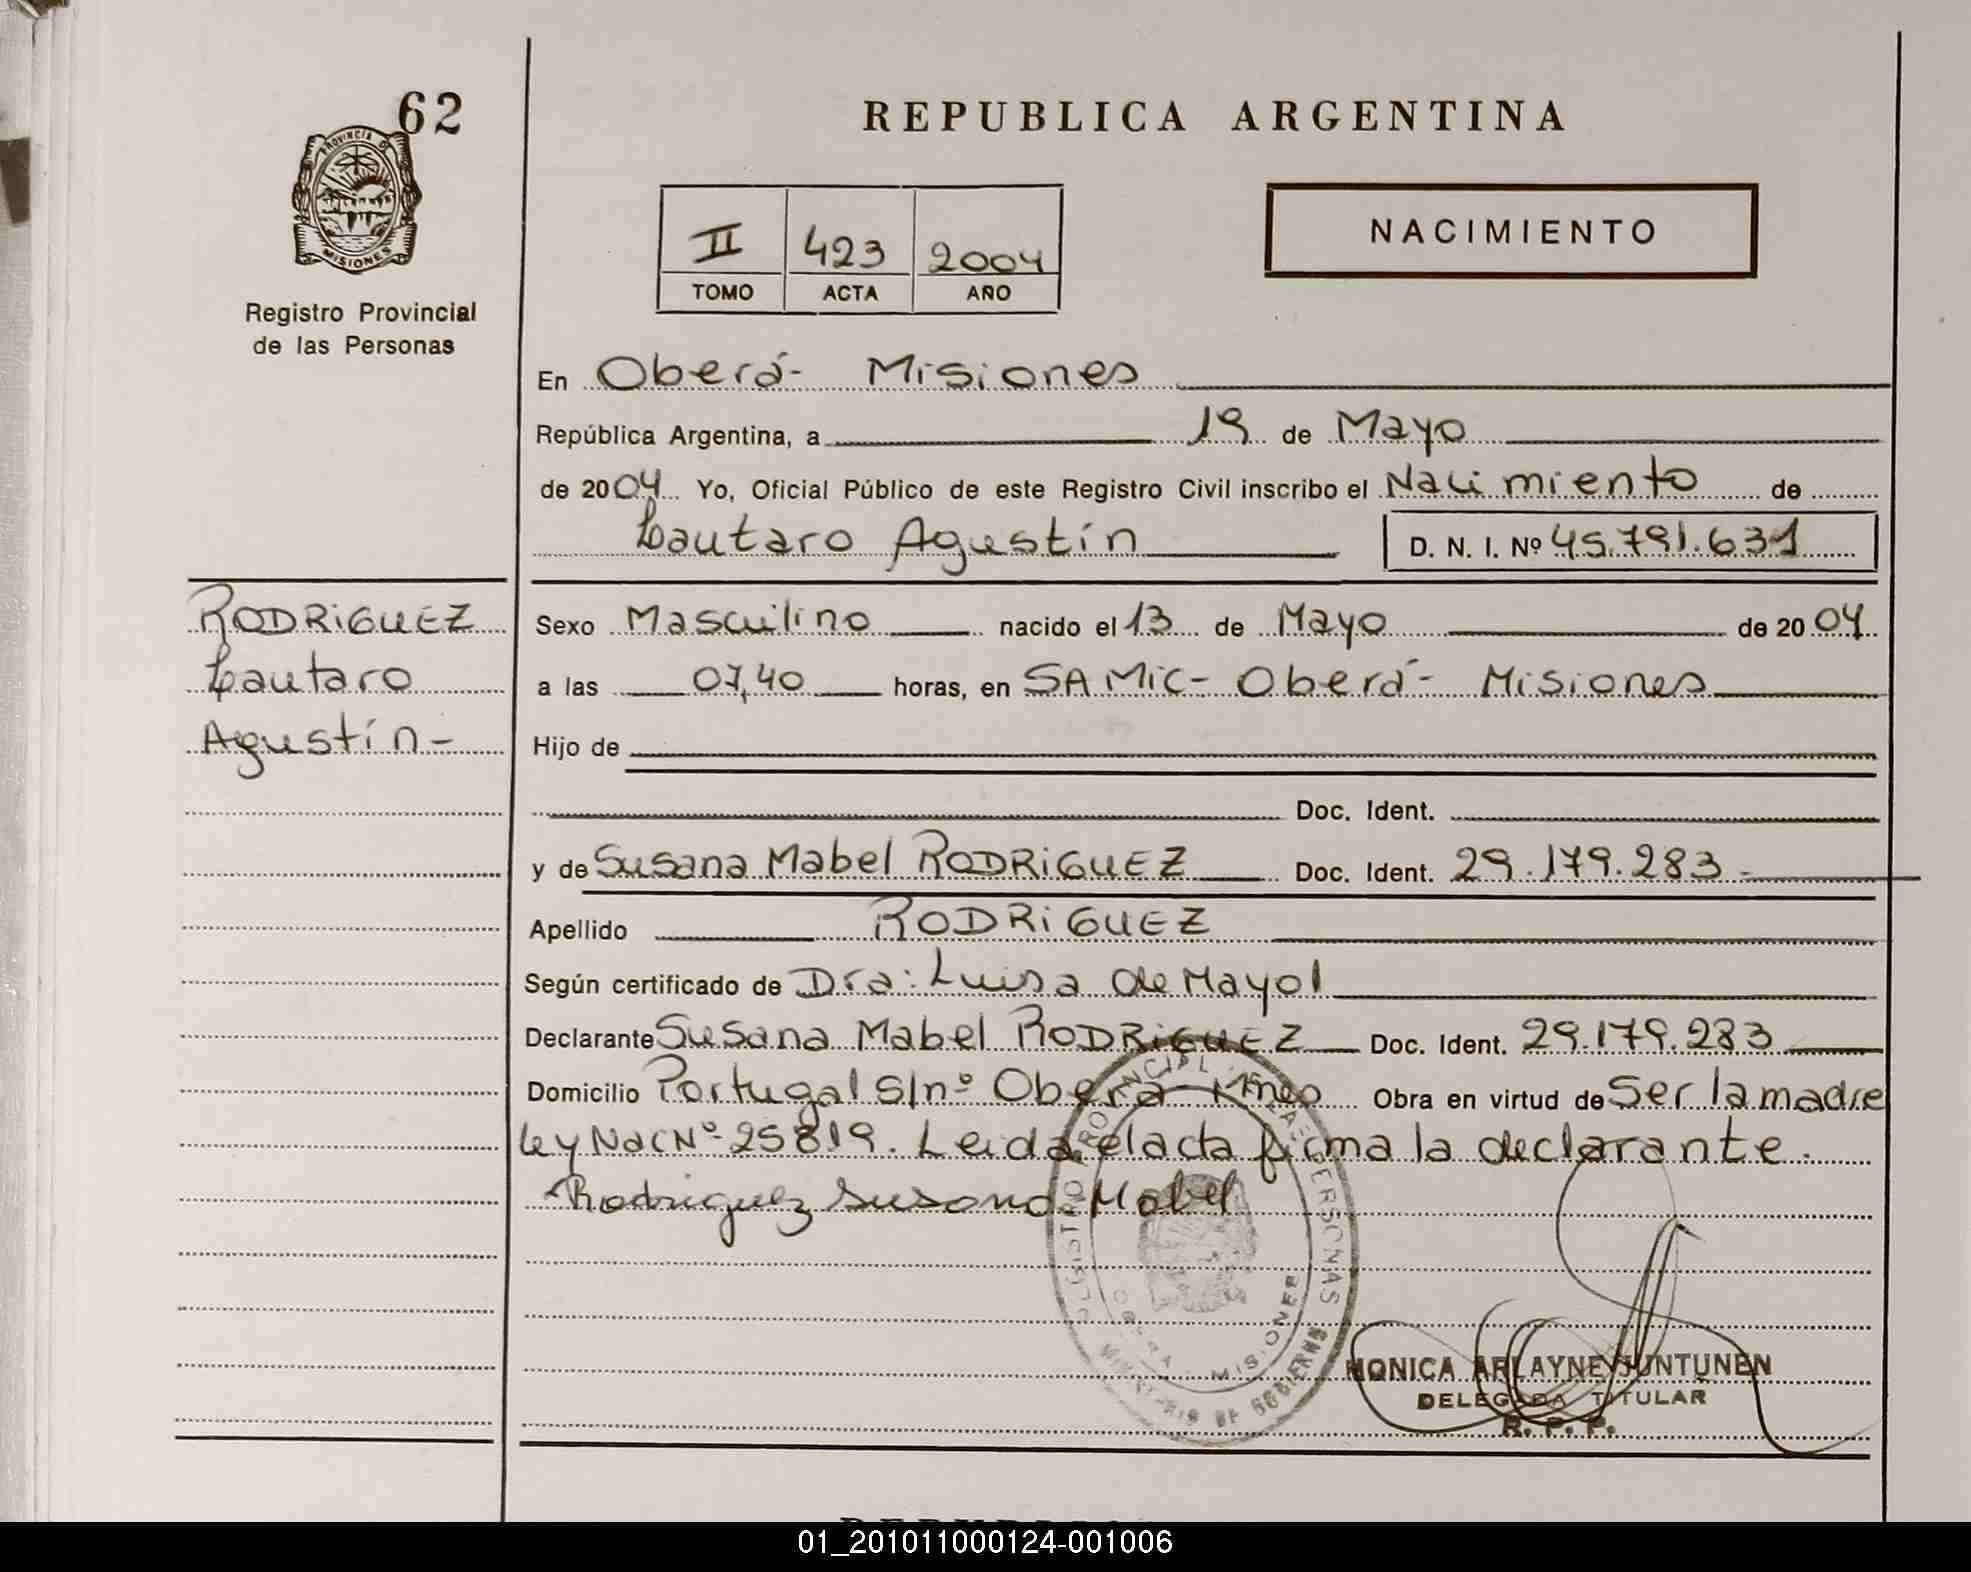 62
REPUBLICA ARGENTINA
PROVINCIA DE
MISIONES
Registro Provincial
de las Personas
II 423 2004
TOMO ACTA AÑO
NACIMIENTO
En Oberá- Misiones
República Argentina, a 19 de Mayo
de 2004 Yo, Oficial Público de este Registro Civil inscribo el Nacimiento de
Lautaro Agustín D. N. I. Nº 45.791.631
RODRIGUEZ
Lautaro
Agustín-
Sexo Masculino nacido el 13 de Mayo de 2004
a las 07,40 horas, en SAMIC- Oberá- Misiones
Hijo de
Doc. Ident.
y de Susana Mabel RODRIGUEZ Doc. Ident. 29.179.283-
Apellido RODRIGUEZ
Según certificado de Dra: Luisa de Mayol
Declarante Susana Mabel RODRIGUEZ Doc. Ident. 29.179.283
Domicilio Portugal S/nº Oberá- Mnes Obra en virtud de Ser la madre
Ley Nac Nº- 25819. Leida el acta firma la declarante.
Rodriguez Susana Mabel
REGISTRO PROVINCIAL DE LAS PERSONAS
OBERA - MISIONES
MINISTERIO DE GOBIERNO
MONICA ARLAYNE JUNTUNEN
DELEGADA TITULAR
R. P. P.
01_201011000124-001006